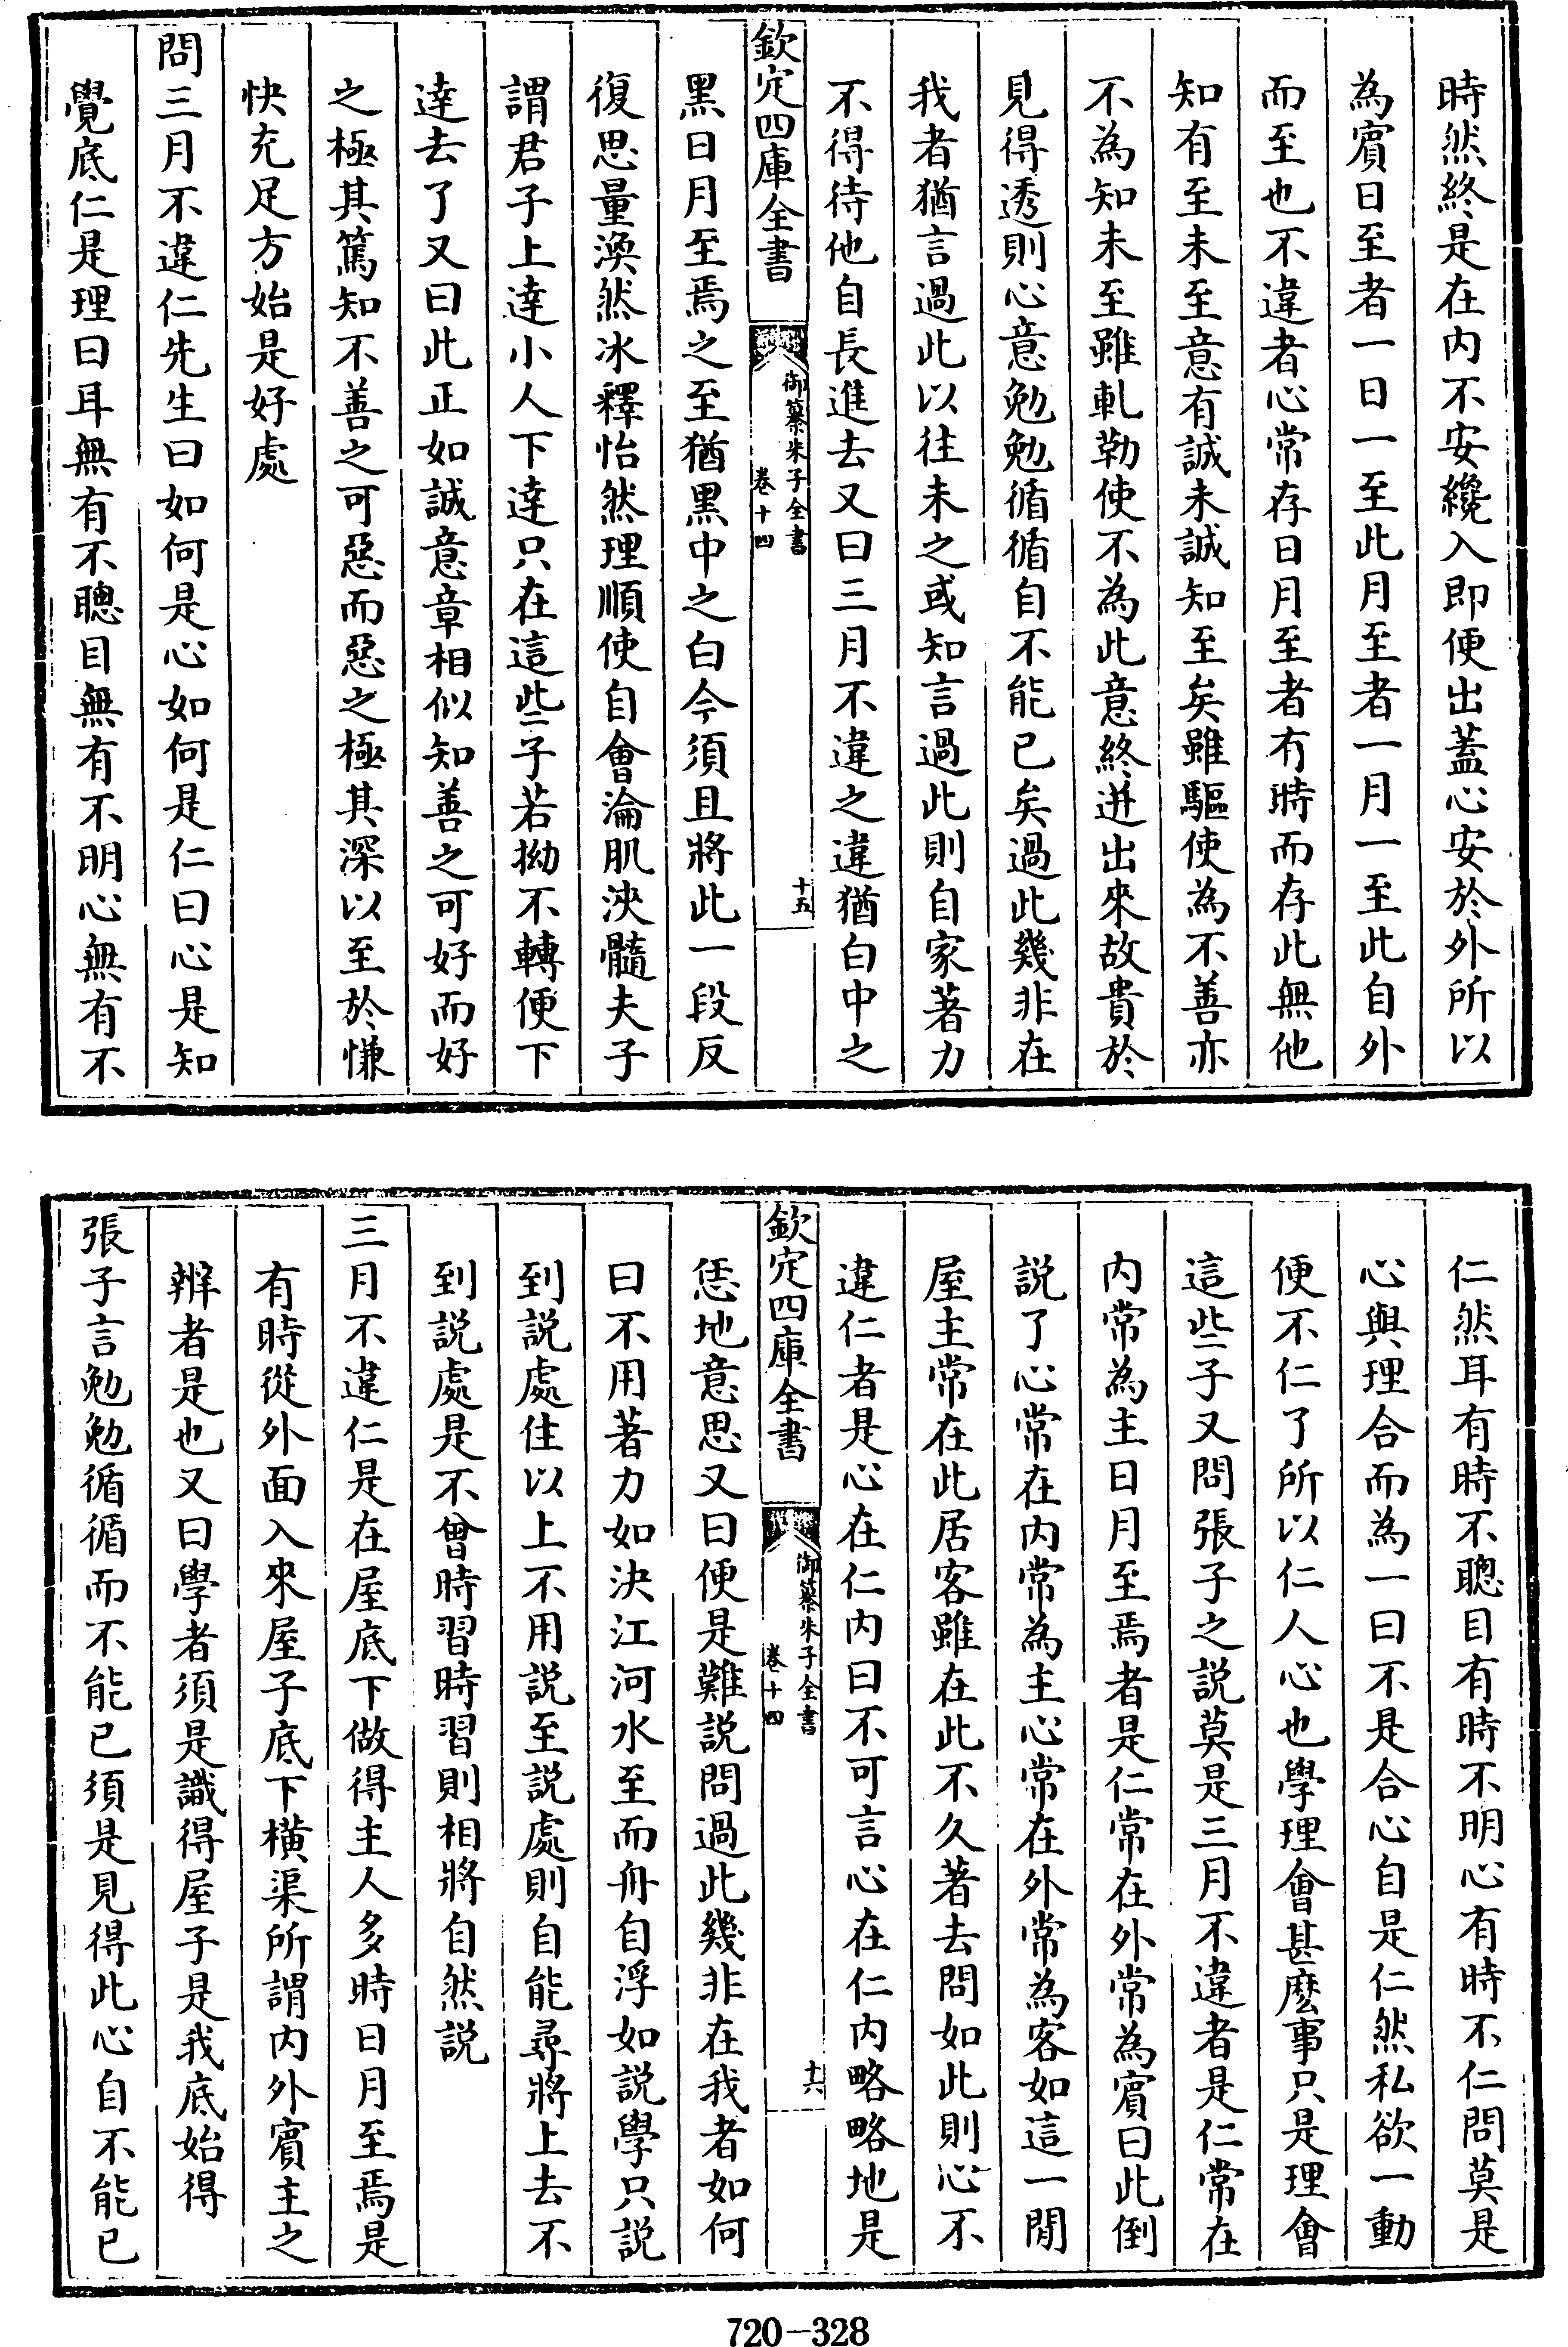 時然終是在内不安纔入即便出蓋心安於外所以
為賔日至者一日一至此月至者一月一至此自外
而至也不違者心常存日月至者有時而存此無他
知有至未至意有誠未誠知至矣雖驅使為不善亦
不為知未至雖軋勒使不為此意終迸出來故貴於
見得透則心意勉勉循循自不能已矣過此幾非在
我者猶言過此以往未之或知言過此則自家著力
不得待他自長進去又曰三月不違之違猶白中之
欽定四庫全書
御纂朱子全書
卷十四
十五
黑日月至焉之至猶黑中之白今須且將此一段反
復思量渙然冰釋怡然理順使自會淪肌浹髓夫子
謂君子上達小人下達只在這些子若拗不轉便下
達去了又曰此正如誠意章相似知善之可好而好
之極其篤知不善之可惡而惡之極其深以至於慊
快充足方始是好處
問三月不違仁先生曰如何是心如何是仁曰心是知
覺底仁是理曰耳無有不聰目無有不明心無有不
仁然耳有時不聰目有時不明心有時不仁問莫是
心與理合而為一曰不是合心自是仁然私欲一動
便不仁了所以仁人心也學理會甚麽事只是理會
這些子又問張子之説莫是三月不違者是仁常在
内常為主日月至焉者是仁常在外常為賔曰此倒
説了心常在内常為主心常在外常為客如這一閒
屋主常在此居客雖在此不久著去問如此則心不
違仁者是心在仁内曰不可言心在仁内略略地是
欽定四庫全書
御纂朱子全書
卷十四
十六
恁地意思又曰便是難説問過此幾非在我者如何
曰不用著力如決江河水至而舟自浮如説學只説
到説處住以上不用説至説處則自能尋將上去不
到説處是不曾時習時習則相將自然説
三月不違仁是在屋底下做得主人多時日月至焉是
有時從外面入來屋子底下横渠所謂内外賔主之
辨者是也又曰學者須是識得屋子是我底始得
張子言勉勉循循而不能已須是見得此心自不能已
720-328